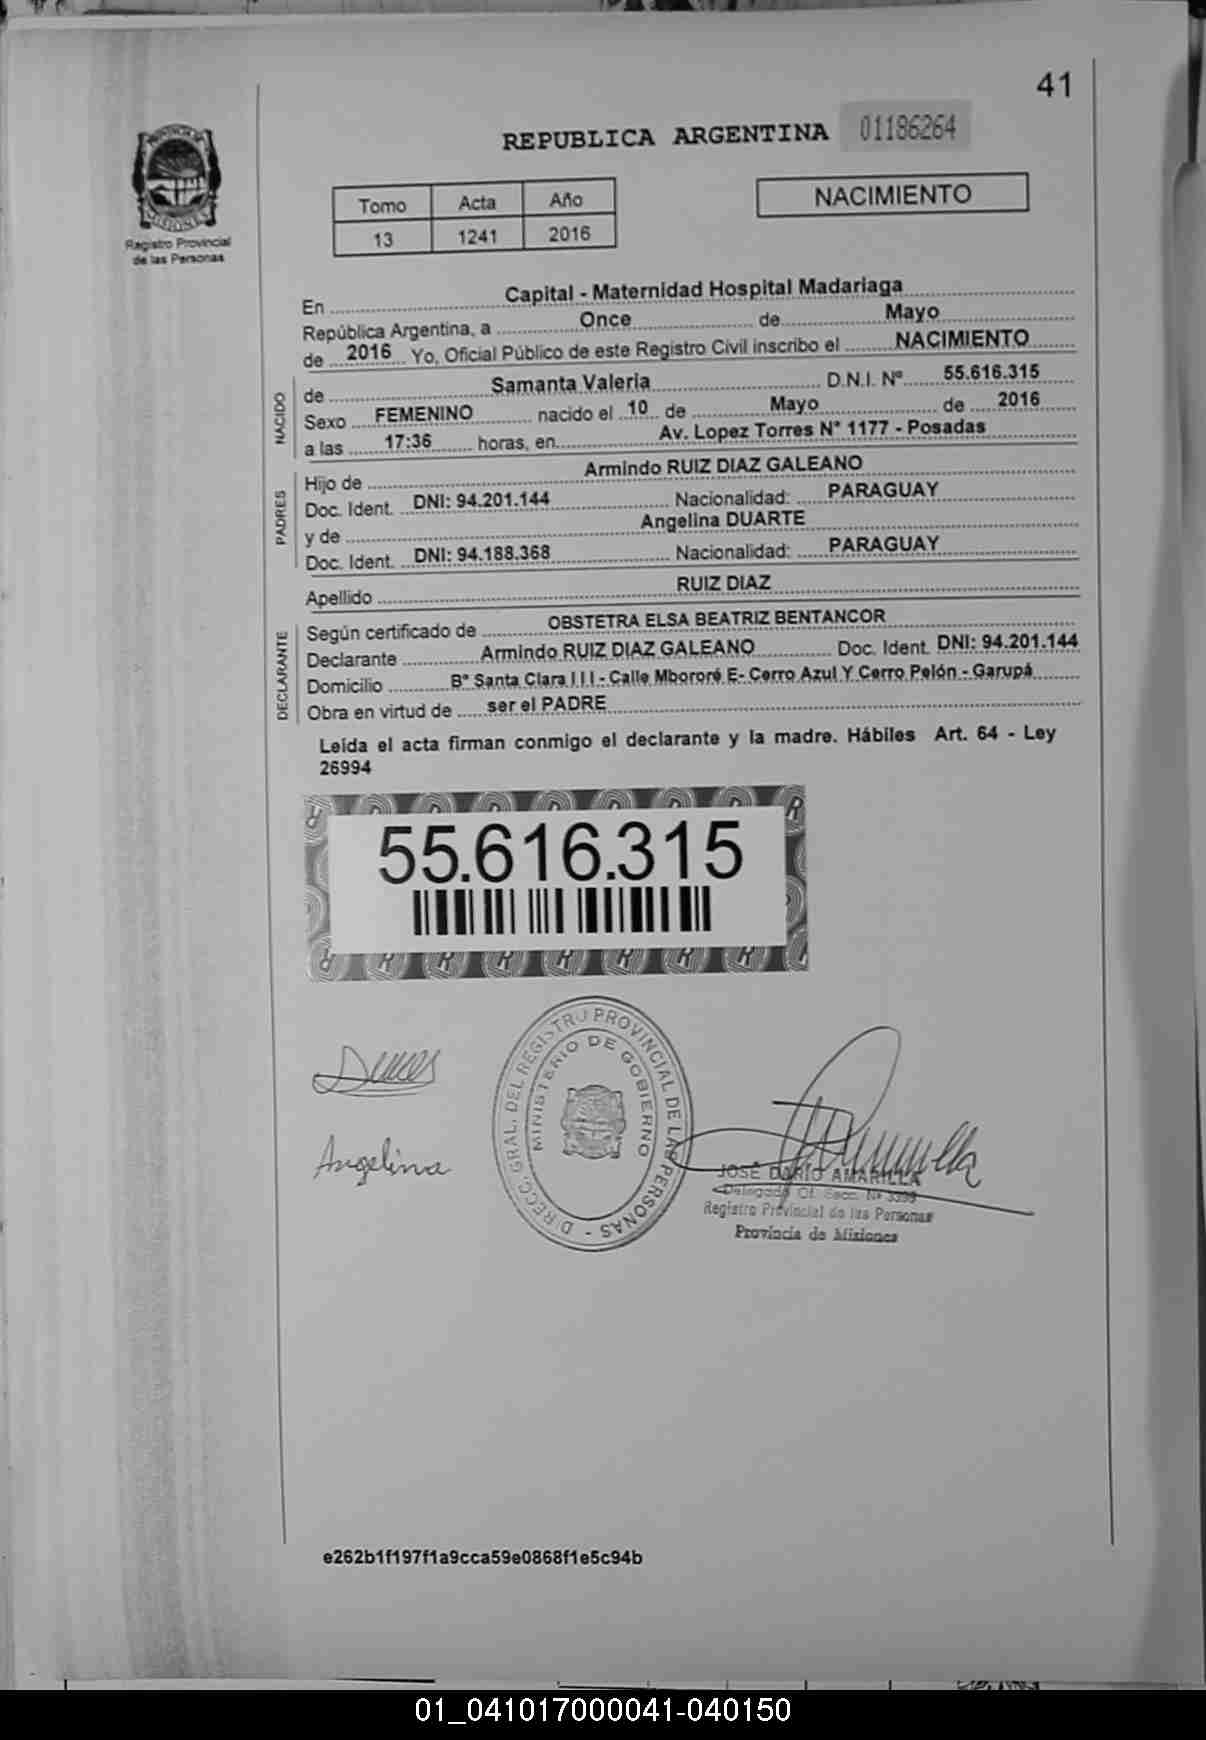 41
REPUBLICA ARGENTINA 01186264
Registro Provincial
de las Personas
Tomo Acta Año
13 1241 2016
NACIMIENTO
En Capital - Maternidad Hospital Madariaga
República Argentina, a Once de Mayo
de 2016 Yo, Oficial Público de este Registro Civil inscribo el NACIMIENTO
NACIDO
de Samanta Valeria D.N.I. Nº 55.616.315
Sexo FEMENINO nacido el 10 de Mayo de 2016
a las 17:36 horas, en Av. Lopez Torres N° 1177 - Posadas
PADRES
Hijo de Armindo RUIZ DIAZ GALEANO
Doc. Ident. DNI: 94.201.144 Nacionalidad: PARAGUAY
y de Angelina DUARTE
Doc. Ident. DNI: 94.188.368 Nacionalidad: PARAGUAY
Apellido RUIZ DIAZ
DECLARANTE
Según certificado de OBSTETRA ELSA BEATRIZ BENTANCOR
Declarante Armindo RUIZ DIAZ GALEANO Doc. Ident. DNI: 94.201.144
Domicilio B° Santa Clara III - Calle Mbororé E- Cerro Azul Y Cerro Pelón - Garupá
Obra en virtud de ser el PADRE
Leída el acta firman conmigo el declarante y la madre. Hábiles Art. 64 - Ley
26994
55.616.315
DIRECC. GRAL. DEL REGISTRO PROVINCIAL DE LAS PERSONAS -
MINISTERIO DE GOBIERNO
Angelina
JOSÉ DARÍO AMARILLA
Delegado Of. Secc. Nº 3399
Registro Provincial de las Personas
Provincia de Misiones
e262b1f197f1a9cca59e0868f1e5c94b
01_041017000041-040150